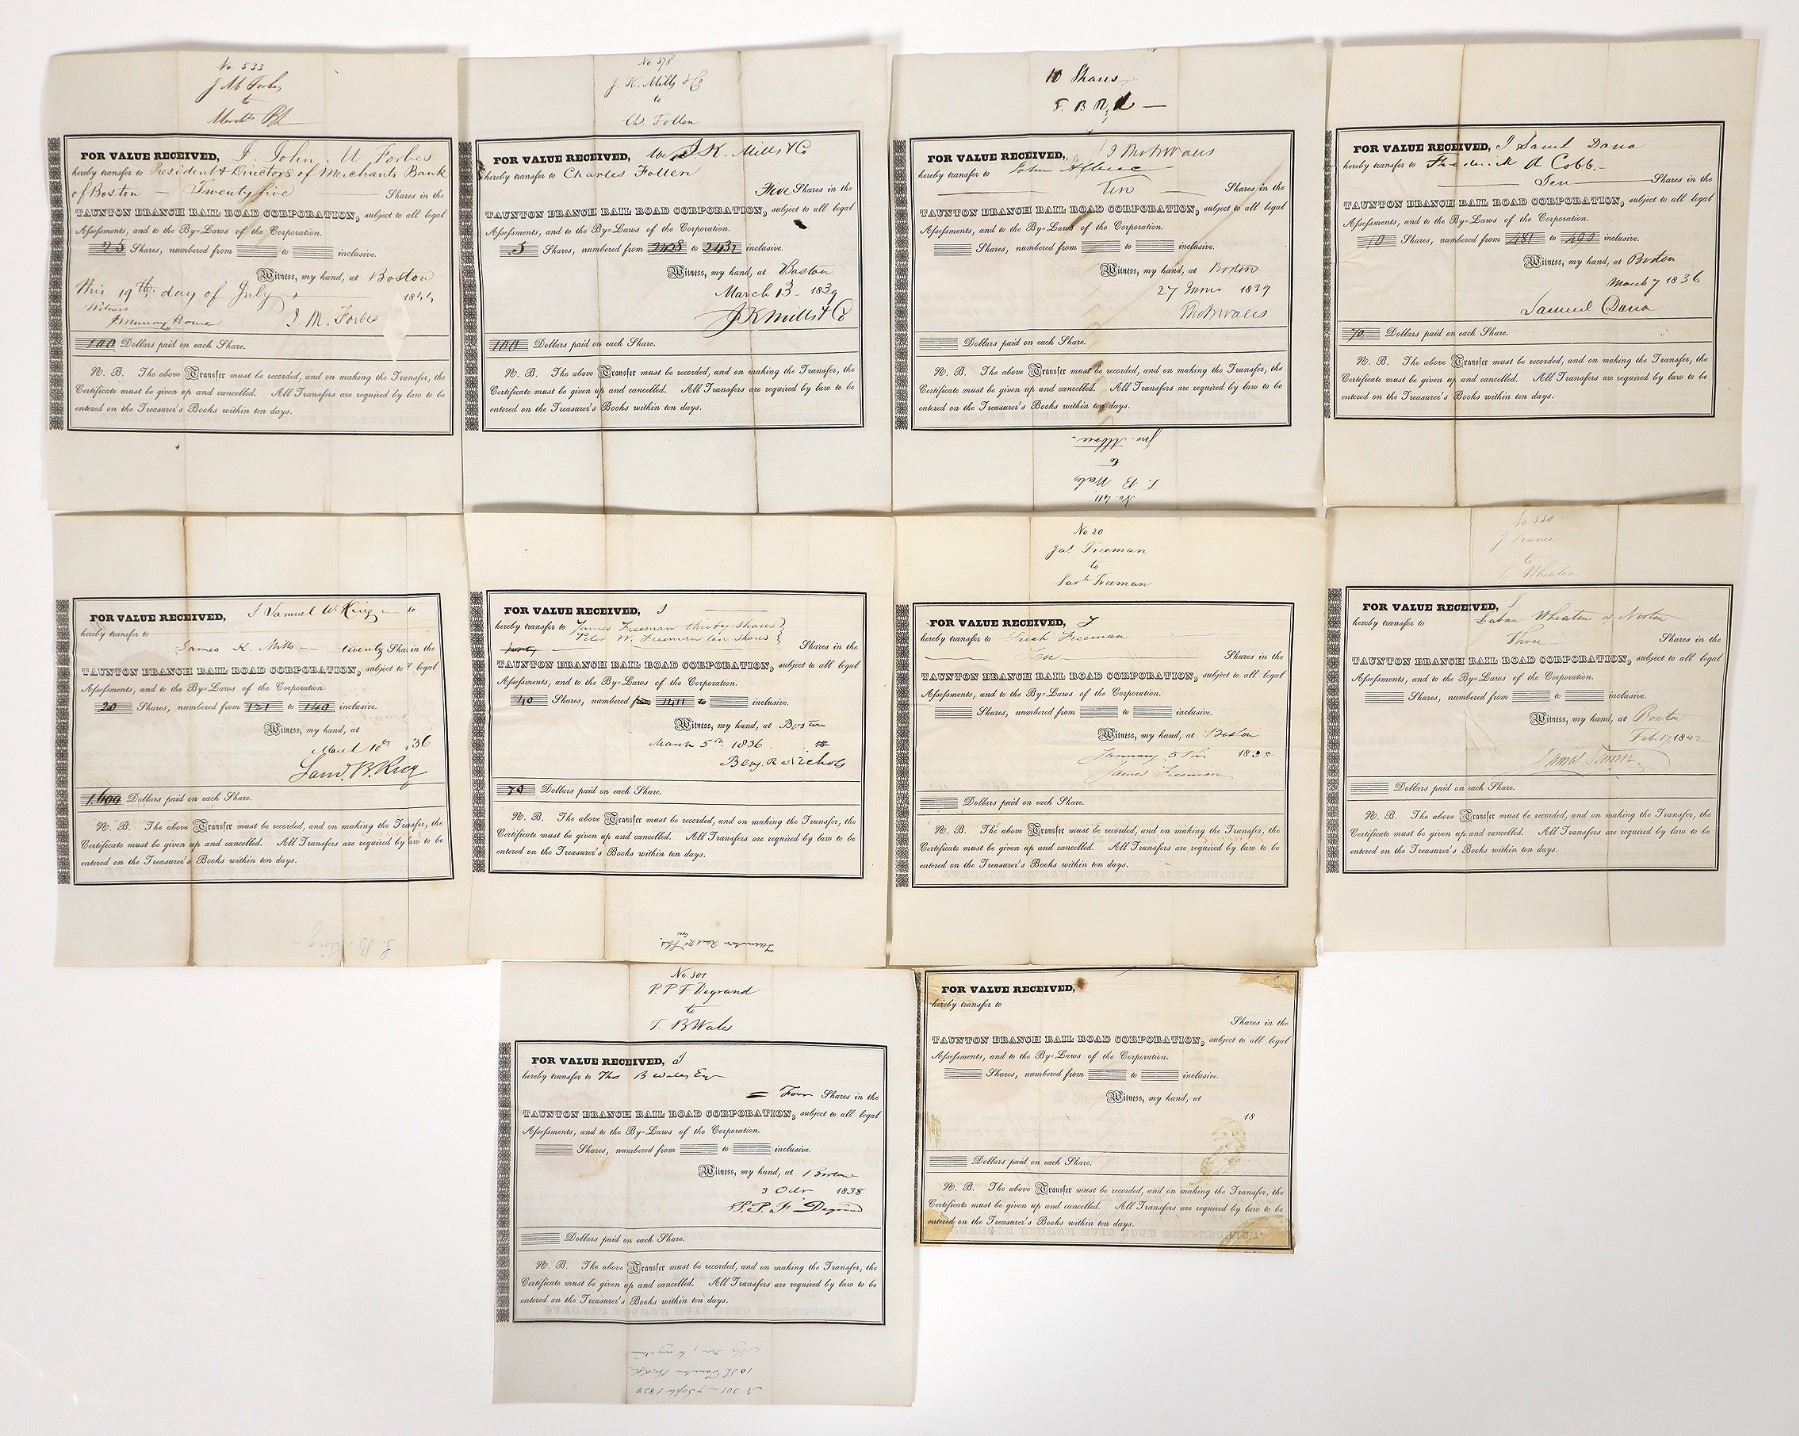 No. 533
J M Forbes
to
Merch Bk
FOR VALUE RECEIVED, I, John M Forbes
hereby transfer to President & Directors of Merchants Bank
of Boston — Twenty five Shares in the
TAUNTON BRANCH RAIL ROAD CORPORATION, subject to all legal
Assessments, and to the By-Laws of the Corporation.
25 Shares, numbered from to inclusive.
Witness, my hand, at Boston
this 19th day of July 1844
Witness
J. M. Forbes
100 Dollars paid on each Share.
N. B. The above Transfer must be recorded, and on making the Transfer, the
Certificate must be given up and cancelled. All Transfers are required by law to be
entered on the Treasurer's Books within ten days.
No. 378
J. K. Mills & Co
to
Ch. Follen
FOR VALUE RECEIVED, We J. K. Mills & Co
hereby transfer to Charles Follen
Five Shares in the
TAUNTON BRANCH RAIL ROAD CORPORATION, subject to all legal
Assessments, and to the By-Laws of the Corporation.
5 Shares, numbered from 2428 to 2432 inclusive.
Witness, my hand, at Boston
March 13 - 1839
J K Mills & Co
100 Dollars paid on each Share.
N. B. The above Transfer must be recorded, and on making the Transfer, the
Certificate must be given up and cancelled. All Transfers are required by law to be
entered on the Treasurer's Books within ten days.
10 Shares
FOR VALUE RECEIVED, I Tho B Wales
hereby transfer to John
Ten Shares in the
TAUNTON BRANCH RAIL ROAD CORPORATION, subject to all legal
Assessments, and to the By-Laws of the Corporation.
Shares, numbered from to inclusive.
Witness, my hand, at Boston
27 June 1839
Tho B Wales
Dollars paid on each Share.
N. B. The above Transfer must be recorded, and on making the Transfer, the
Certificate must be given up and cancelled. All Transfers are required by law to be
entered on the Treasurer's Books within ten days.
T. B Wales
FOR VALUE RECEIVED, I Samuel Dana
hereby transfer to Frederick A Cobb
Ten Shares in the
TAUNTON BRANCH RAIL ROAD CORPORATION, subject to all legal
Assessments, and to the By-Laws of the Corporation.
10 Shares, numbered from 481 to 490 inclusive.
Witness, my hand, at Boston
March 7 1836
Samuel Dana
70 Dollars paid on each Share.
N. B. The above Transfer must be recorded, and on making the Transfer, the
Certificate must be given up and cancelled. All Transfers are required by law to be
entered on the Treasurer's Books within ten days.
FOR VALUE RECEIVED, I Samuel B. King to
hereby transfer to
James K. Mills twenty Shares in the
TAUNTON BRANCH RAIL ROAD CORPORATION, subject to all legal
Assessments, and to the By-Laws of the Corporation.
20 Shares, numbered from 121 to 140 inclusive.
Witness, my hand, at
March 10th 1836
Saml. B. King
Dollars paid on each Share.
N. B. The above Transfer must be recorded, and on making the Transfer, the
Certificate must be given up and cancelled. All Transfers are required by law to be
entered on the Treasurer's Books within ten days.
S. B. King
FOR VALUE RECEIVED, I
hereby transfer to James Freeman thirty shares }
Peter W. Freeman ten shares }
forty Shares in the
TAUNTON BRANCH RAIL ROAD CORPORATION, subject to all legal
Assessments, and to the By-Laws of the Corporation.
40 Shares, numbered to inclusive.
Witness, my hand, at Boston
March 5th 1836. 18
Benj. R Nichols
70 Dollars paid on each Share.
N. B. The above Transfer must be recorded, and on making the Transfer, the
Certificate must be given up and cancelled. All Transfers are required by law to be
entered on the Treasurer's Books within ten days.
No 20
Jas. Freeman
to
Sarh Freeman
FOR VALUE RECEIVED, I
hereby transfer to Sarah Freeman
Ten Shares in the
TAUNTON BRANCH RAIL ROAD CORPORATION, subject to all legal
Assessments, and to the By-Laws of the Corporation.
Shares, numbered from to inclusive.
Witness, my hand, at Boston
January 5th. 1838
James Freeman
Dollars paid on each Share.
N. B. The above Transfer must be recorded, and on making the Transfer, the
Certificate must be given up and cancelled. All Transfers are required by law to be
entered on the Treasurer's Books within ten days.
to
L Wheaton
FOR VALUE RECEIVED, I
hereby transfer to Laban Wheaton of Norton
Three Shares in the
TAUNTON BRANCH RAIL ROAD CORPORATION, subject to all legal
Assessments, and to the By-Laws of the Corporation.
Shares, numbered from to inclusive.
Witness, my hand, at Boston
Feb. 17, 1842
Dollars paid on each Share.
N. B. The above Transfer must be recorded, and on making the Transfer, the
Certificate must be given up and cancelled. All Transfers are required by law to be
entered on the Treasurer's Books within ten days.
No. 301
P. P. F Degrand
to
T. B Wales
FOR VALUE RECEIVED, I
hereby transfer to Thos B Wales Esqr
Four Shares in the
TAUNTON BRANCH RAIL ROAD CORPORATION, subject to all legal
Assessments, and to the By-Laws of the Corporation.
Shares, numbered from to inclusive.
Witness, my hand, at Boston
3 Octr 1838
P. P. F. Degrand
Dollars paid on each Share.
N. B. The above Transfer must be recorded, and on making the Transfer, the
Certificate must be given up and cancelled. All Transfers are required by law to be
entered on the Treasurer's Books within ten days.
FOR VALUE RECEIVED,
hereby transfer to
Shares in the
TAUNTON BRANCH RAIL ROAD CORPORATION, subject to all legal
Assessments, and to the By-Laws of the Corporation.
Shares, numbered from to inclusive.
Witness, my hand, at
18
Dollars paid on each Share.
N. B. The above Transfer must be recorded, and on making the Transfer, the
Certificate must be given up and cancelled. All Transfers are required by law to be
entered on the Treasurer's Books within ten days.